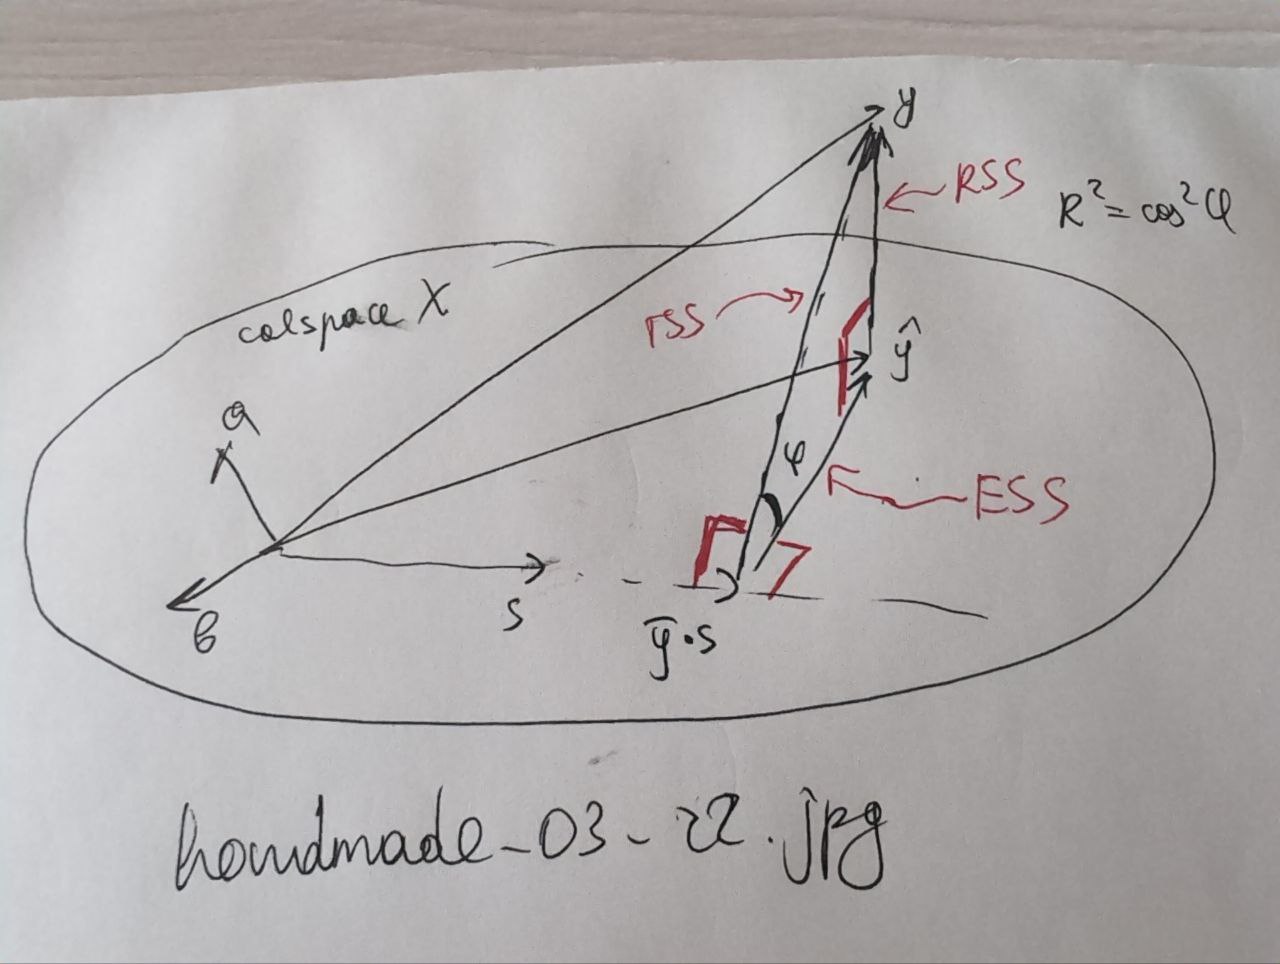 y
RSS
R² = cos² φ
colspace X
rSS
ŷ
a
φ
ESS
s
b
ȳ·s
handmade-03-22.jpg